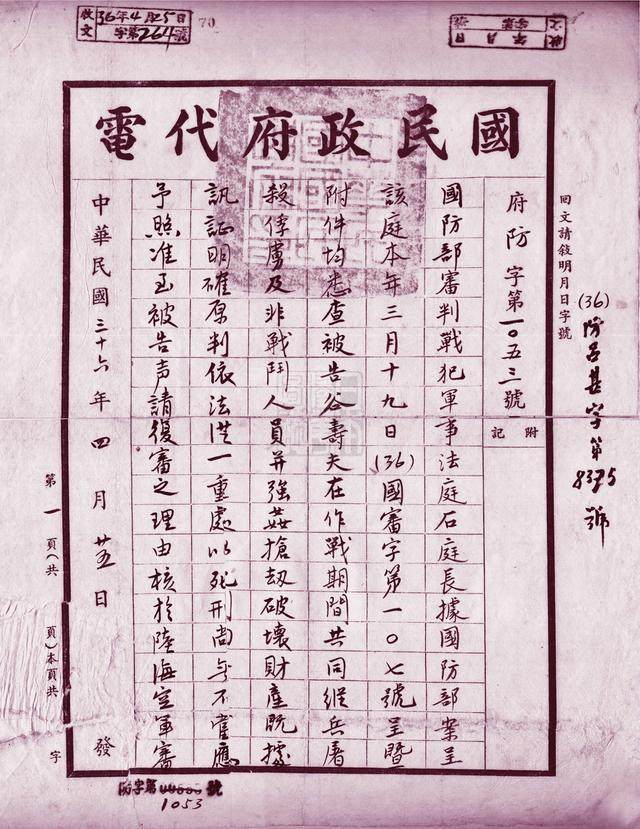 收文 36年4月25日
字第264號
70
收文 年 月 日
字第 號
國民政府代電
回文請敘明月日字號
(36)防呂甚字第8375號
府防字第一〇五三號
附記
國防部審判戰犯軍事法庭石庭長據國防部案呈
該庭本年三月十九日(36)國審字第一〇七號呈暨
附件均悉查被告谷壽夫在作戰期間共同縱兵屠
殺俘虜及非戰鬥人員并強姦搶劫破壞財產既據
訊証明確原判依法從一重處以死刑尚無不當應
予照准至被告声請復審之理由核於陸海空軍審
中華民國三十六年四月廿五日發
第一頁(共 頁)本頁共 字
防字第 號
1053